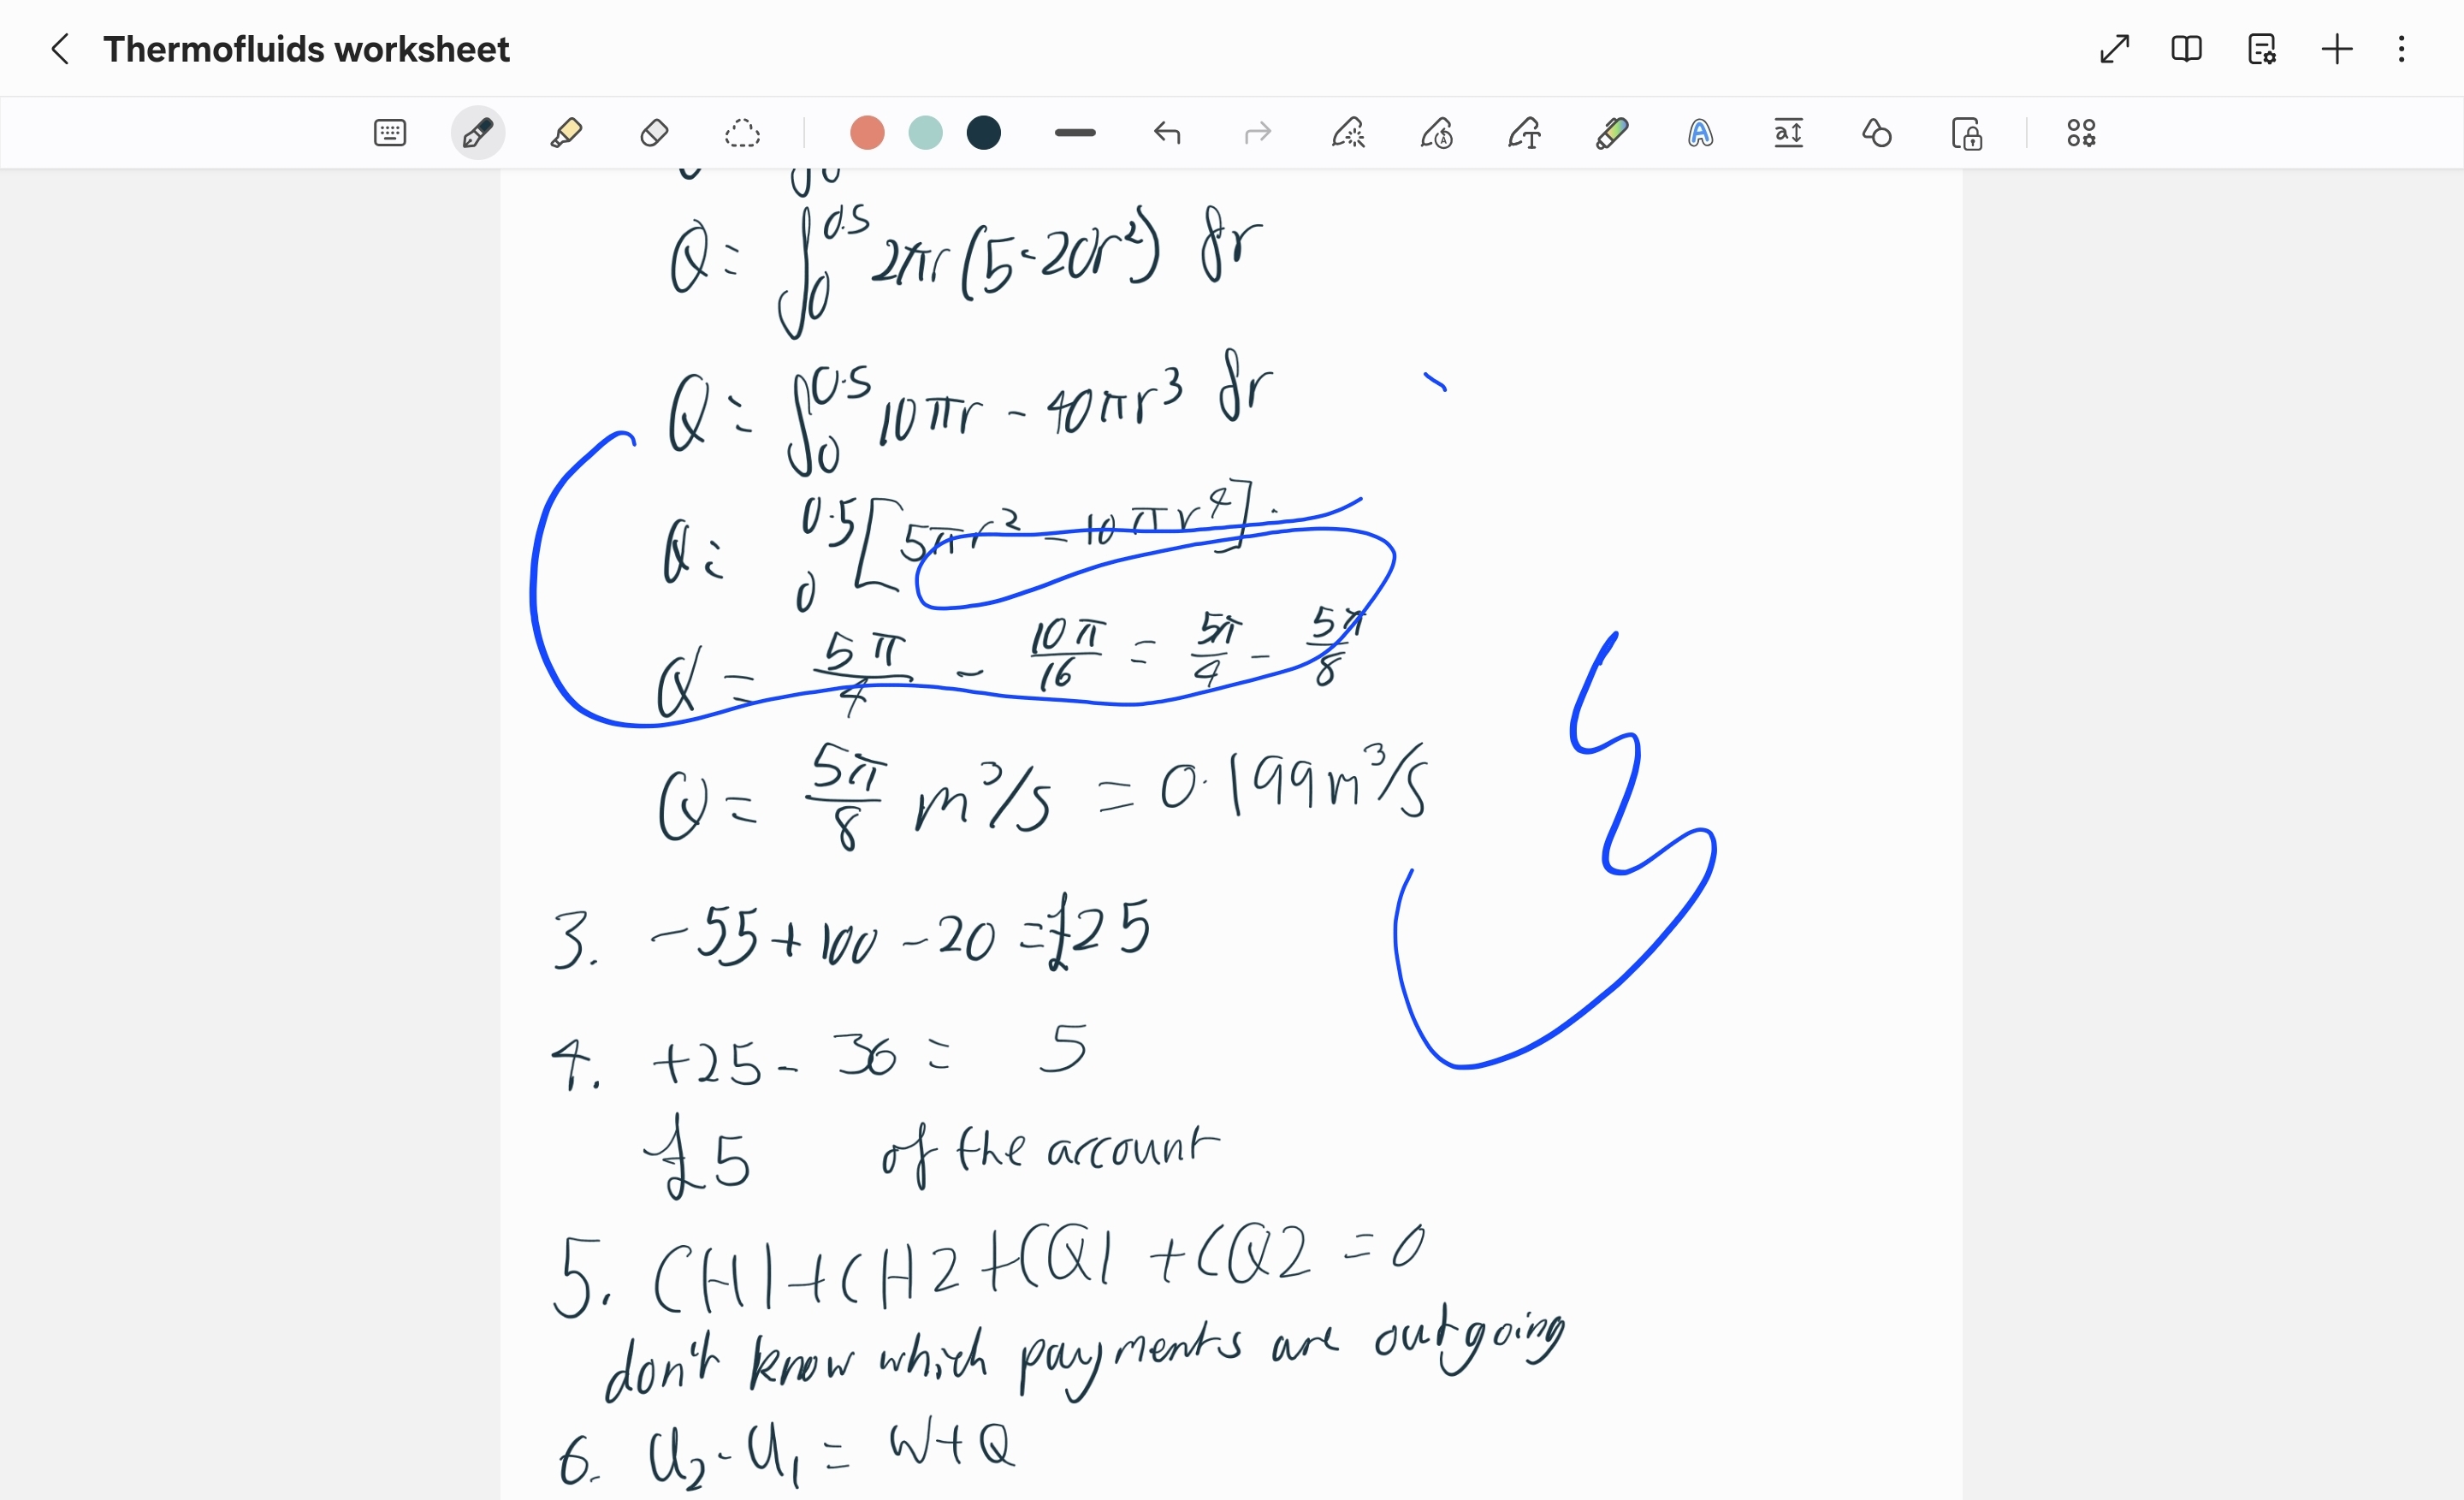 Thermofluids worksheet
Q = ∫₀^0.5 2πr(5-20r²) δr
Q = ∫₀^0.5 10πr - 40πr³ δr
Q = 0.5 0 [5πr² - 10πr⁴]
Q = 5π/4 - 10π/16 = 5π/4 - 5π/8
Q = 5π/8 m³/s = 0.199m³/s
3. -55+100-20 = £25
4. +25-30 = 5
£5 of the account
5. CH1+CH2+CQ1+CQ2=0
don't know which payments are outgoing
6. U₂-U₁ = W+Q